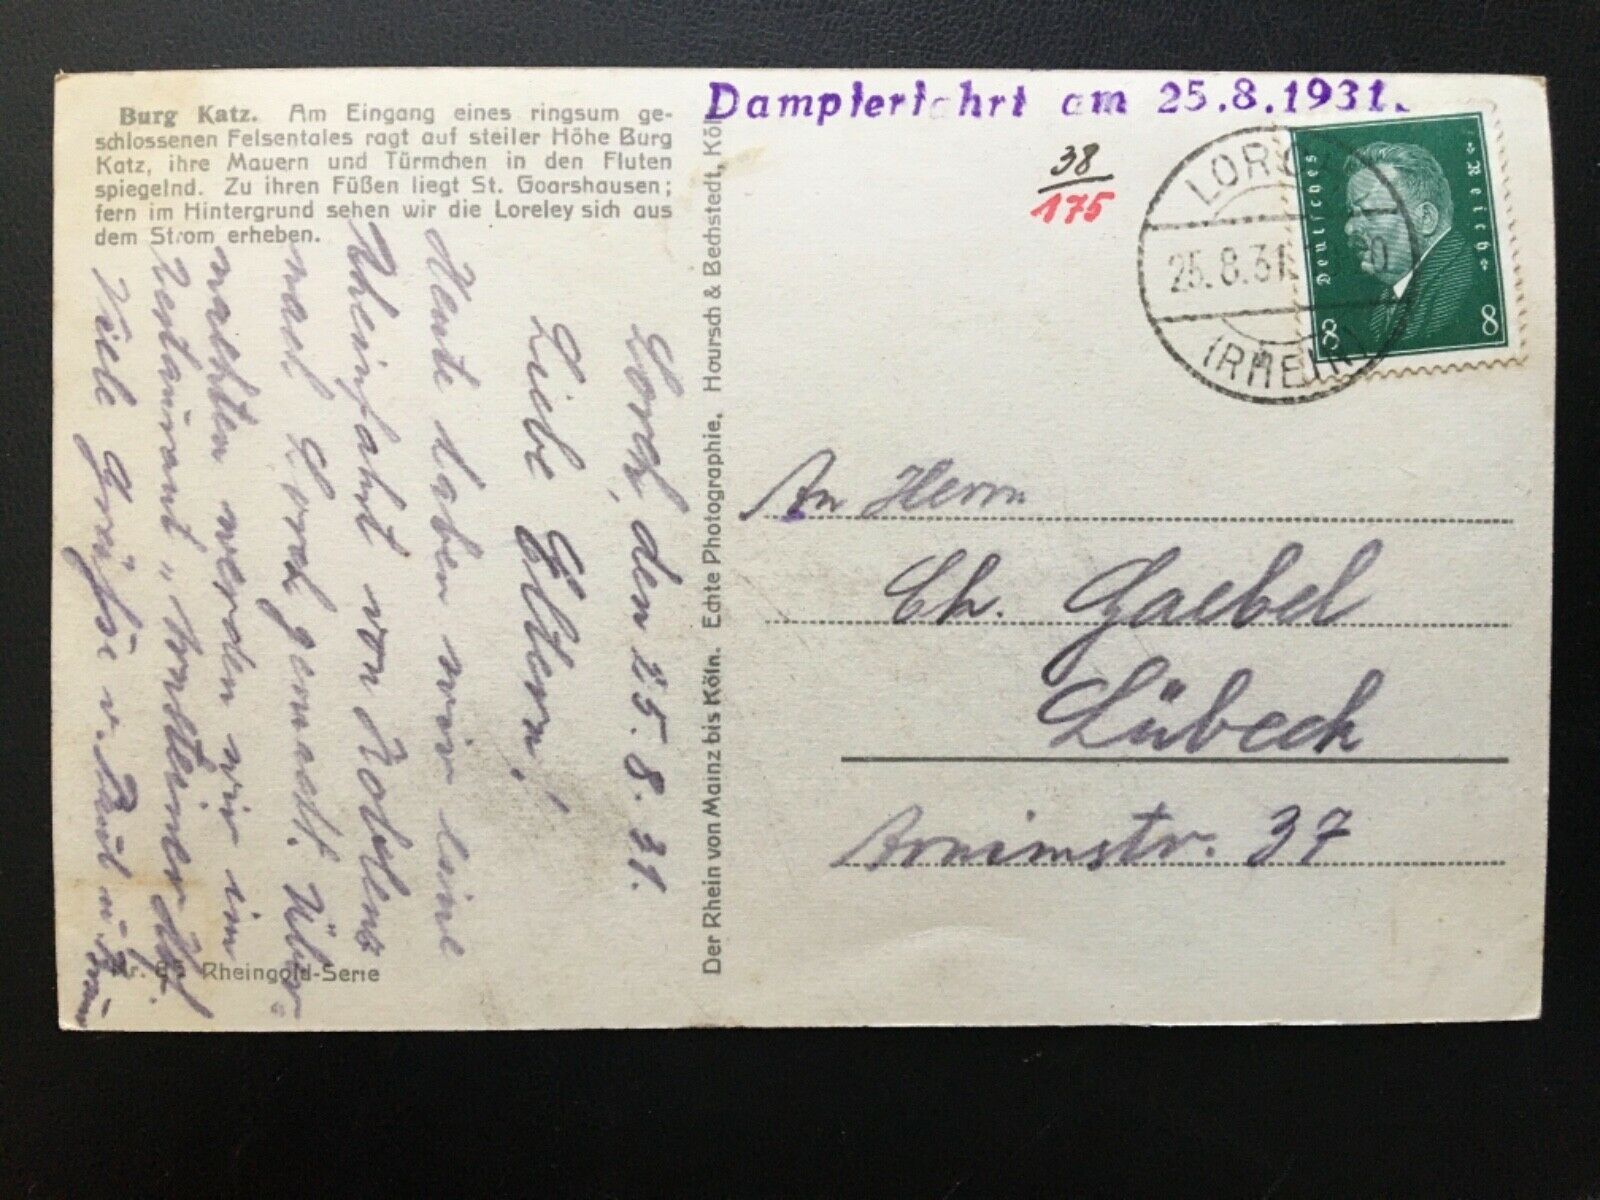 Burg Katz. Am Eingang eines ringsum ge-
schlossenen Felsentales ragt auf steiler Höhe Burg
Katz, ihre Mauern und Türmchen in den Fluten
spiegelnd. Zu ihren Füßen liegt St. Goarshausen;
fern im Hintergrund sehen wir die Loreley sich aus
dem Strom erheben.
Lorch, den 25.8.31.
Liebe Eltern!
Heute haben wir eine
Rheinfahrt von Koblenz
nach Lorch gemacht. Über
nachten werden wir im
Restaurant „ Hof.
Viele Grüße v. Paul u.
Nr. Rheingold-Serie
Der Rhein von Mainz bis Köln. Echte Photographie. Hoursch & Bechstedt, Köl
Dampferfahrt am 25.8.1931.
38
175
LOR
25.8.31
(RHEIN)
Deutsches Reich
8 8
An Herrn
Ch. Gaebel
Lübeck
Arnimstr. 37